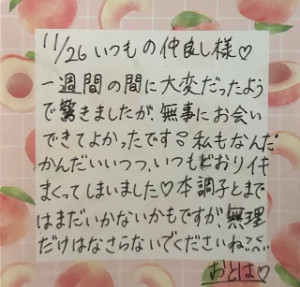 11/26 いつもの仲良し様♡
一週間の間に大変だったよう
で驚きましたが、無事にお会い
できてよかったです。私もなんだ
かんだいいつつ、いつもどおりイキ
まくってしまいました♡本調子とまで
はまだいかないかもですが、無理
だけはなさらないでくださいね
おとは♡